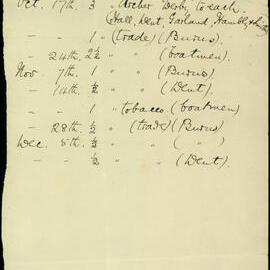 Oct. 17th. 3 " Archer Derby to each.
(Hall, Dent, Garland, Hambly,
— — 1 " (trade) (Burns)
— 24th. 2½ " " (boatmen)
Nov 7th. 1 " " (Burns)
— 14th. ½ " " (Dent).
— — 1 " tobacco. (boatmen)
— 28th. ½ " (trade) (Burns)
Dec. 5th. ½ " " ( " )
— — ½ " " (Dent).